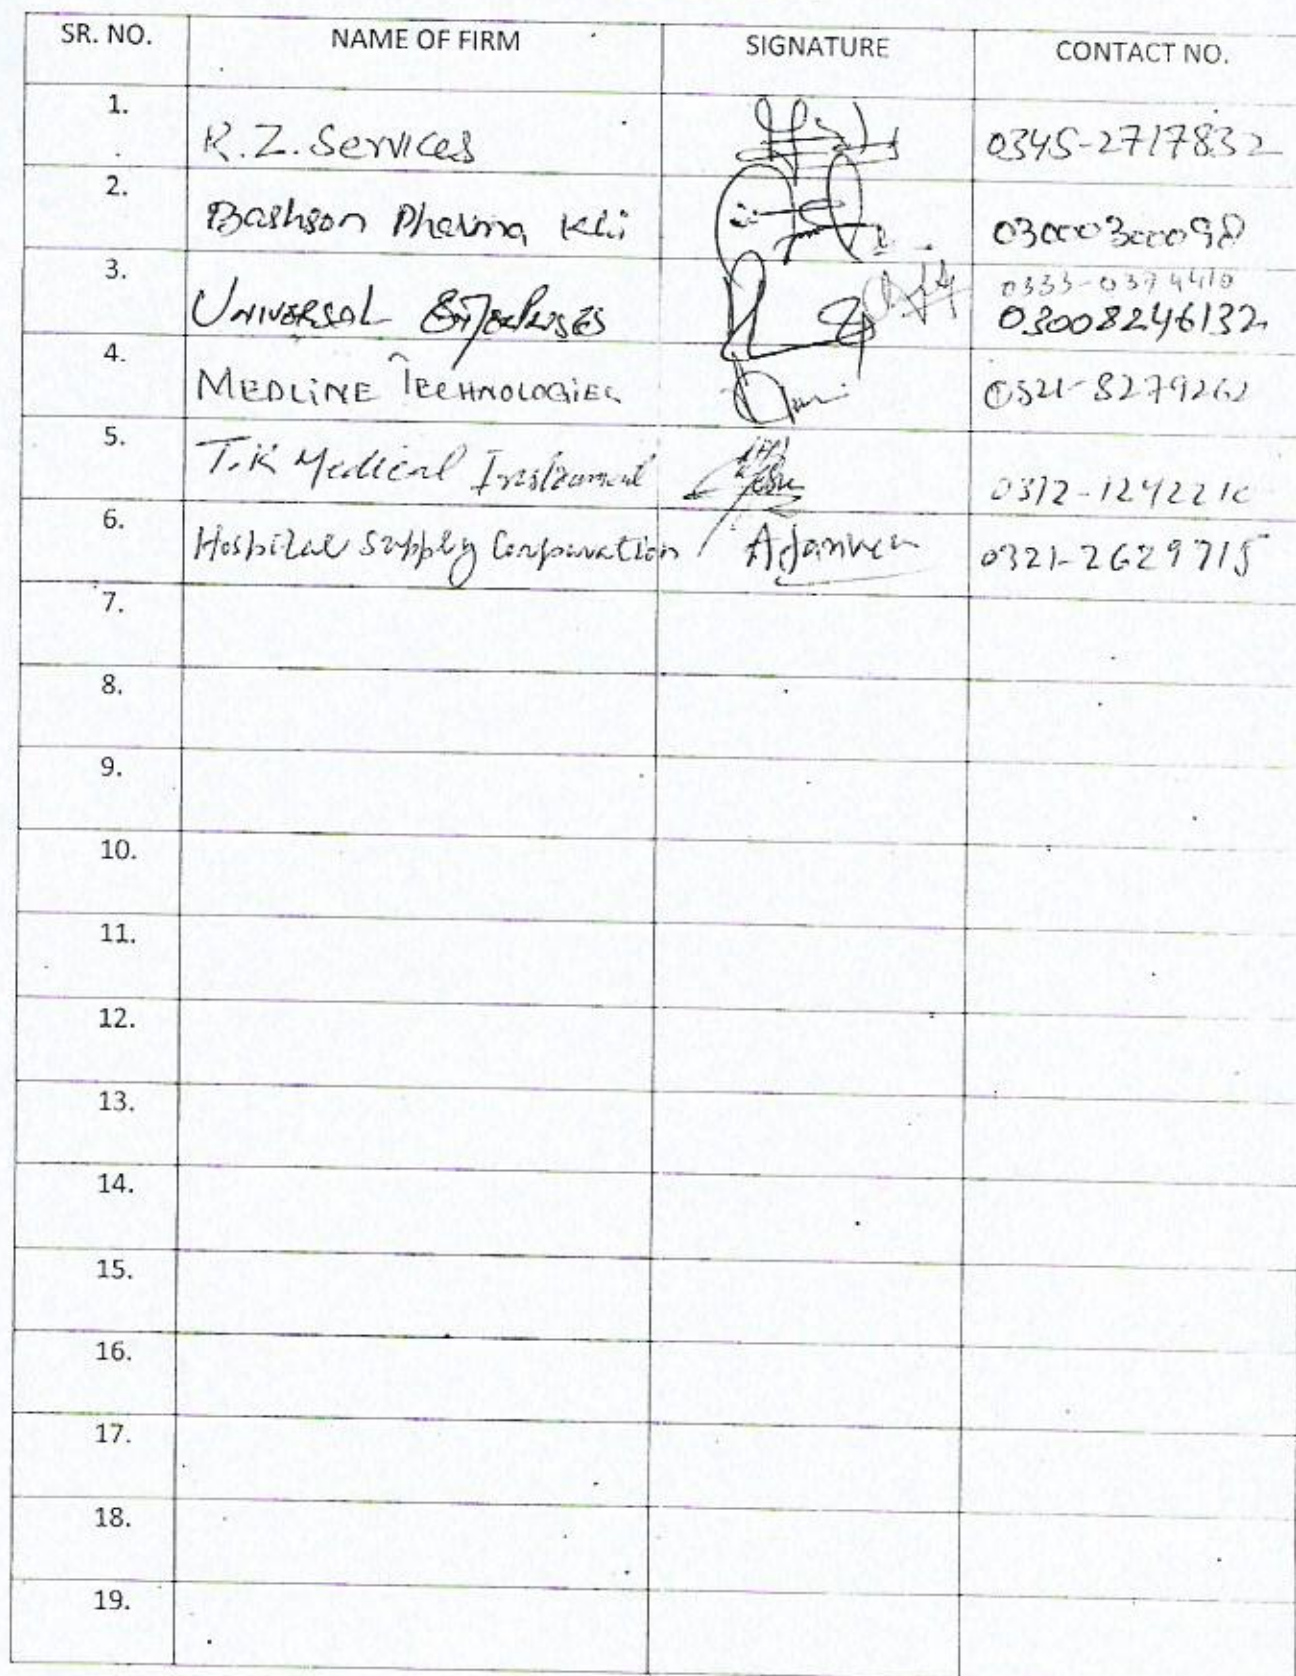 SR. NO. NAME OF FIRM SIGNATURE CONTACT NO.
1. R.Z. Services 0345-2717832
2. Bashson Pharma Khi 03000300098
3. Universal Enterprises 0333-0374410
03008246132
4. MEDLINE TECHNOLOGIES 0321-8279262
5. T.K Medical Instrument 0312-1242210
6. Hospital Supply Corporation 0321-2629715
7.
8.
9.
10.
11.
12.
13.
14.
15.
16.
17.
18.
19.